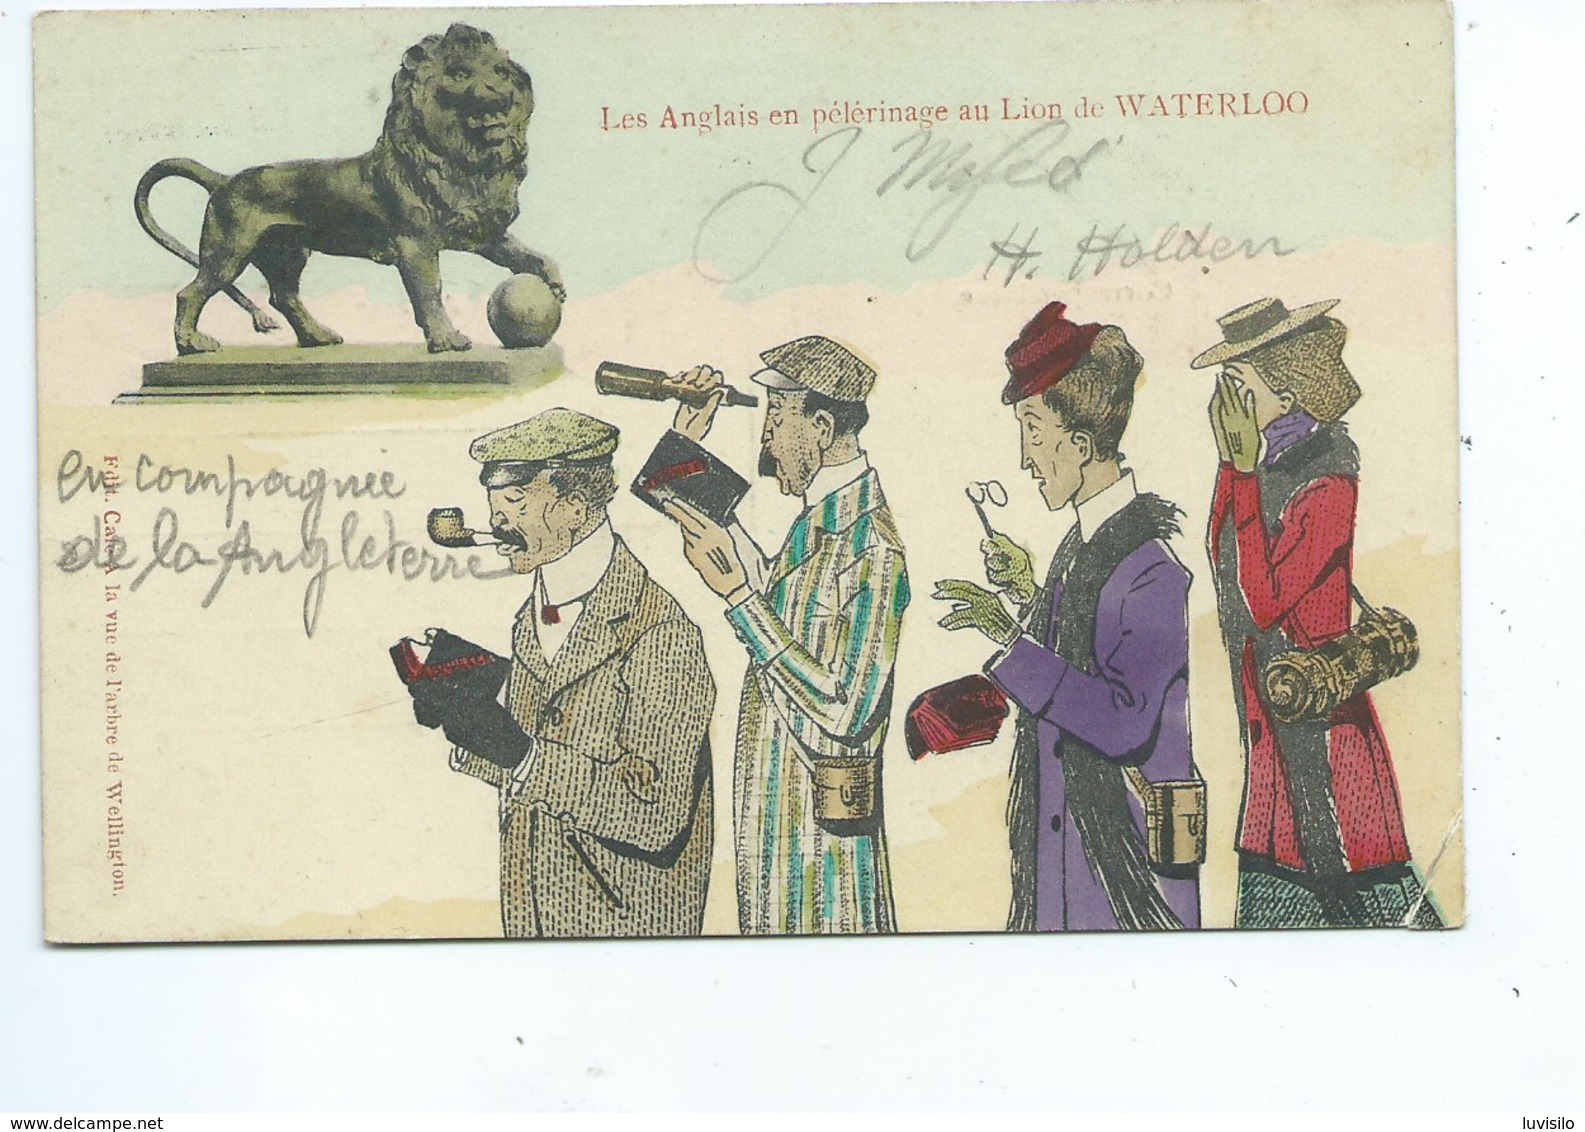 Les Anglais en pélérinage au Lion de WATERLOO
H. Holden
en compagnie
de la Angleterre
Edit. Café A la vue de l'arbre de Wellington.
delcampe.net
luvisilo